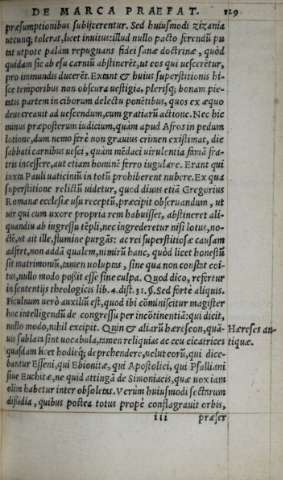 DE MARCA PRAEFAT. 129
præsumptionibus subijcerentur. Sed huiusmodi zizania
utcunq; tolerat, licet inuitus: illud nullo pacto ferendũ pu
tat utpote palàm repugnans fidei sanæ doctrinæ, quòd
quidam sic ab esu carniũ abstineret, ut eos qui uesceretur,
pro immundis duceret. Extant & huius superstitionis hi-
sce temporibus non obscura uestigia, plerisq; bonam pie-
tatis partem in ciborum delectu ponẽtibus, quos ex æquo
deus creauit ad uescendum, cum gratiarũ actione. Nec hic
minus præposterum iudicium, quàm apud Afros in pedum
lotione, dum nemo ferè non grauius crimen existimat, die
sabbati carnibus uesci, quàm mẽdaci uirulentia famã fra-
tris incessere, aut etiam hominẽ ferro iugulare. Erant qui
iuxta Pauli uaticiniũ in totũ prohiberent nubere. Ex qua
superstitione relictũ uidetur, quod diuus etiã Gregorius
Romanæ ecclesiæ usu receptũ, præcipit obseruandum, ut
uir qui cum uxore propria rem habuisset, abstineret ali-
quandiu ab ingressu tẽpli, nec ingrederetur nisi lotus, no-
diẽ, ut ait ille, flumine purgãs: ac rei superstitiosæ causam
adfert, non addã qualem, nimirũ hanc, quòd licet honestũ
sit matrimoniũ, tamen uoluptas, sine qua non constet coi-
tus, nullo modo possit esse sine culpa. Quod dico, refertur
in sententijs theologicis lib. 4. dist. 31. §. Sed fortè aliquis.
Piculnum uerò auxiliũ est, quod ibi cõminiscitur magister
hoc intelligendũ de congressu per incõtinentiã: qui dicit,
nullo modo, nihil excipit. Quin & aliarũ hæreseon, quã-
Hæreses an-
uis sublati sint uocabula, tamen reliquias ac ceu cicatrices
tiquæ.
quasdam licet hodieq; deprehendere, uelut eorũ, qui dice-
bantur Esseni, qui Ebionitæ, qui Apostolici, qui Psalliani
siue Euchitæ, ne quid attingã de Simoniacis, quæ uox iam
olim habetur inter obsoletas. Verùm huiusmodi sectarum
dissidia, quibus postea totus propè conflagrauit orbis,
præser